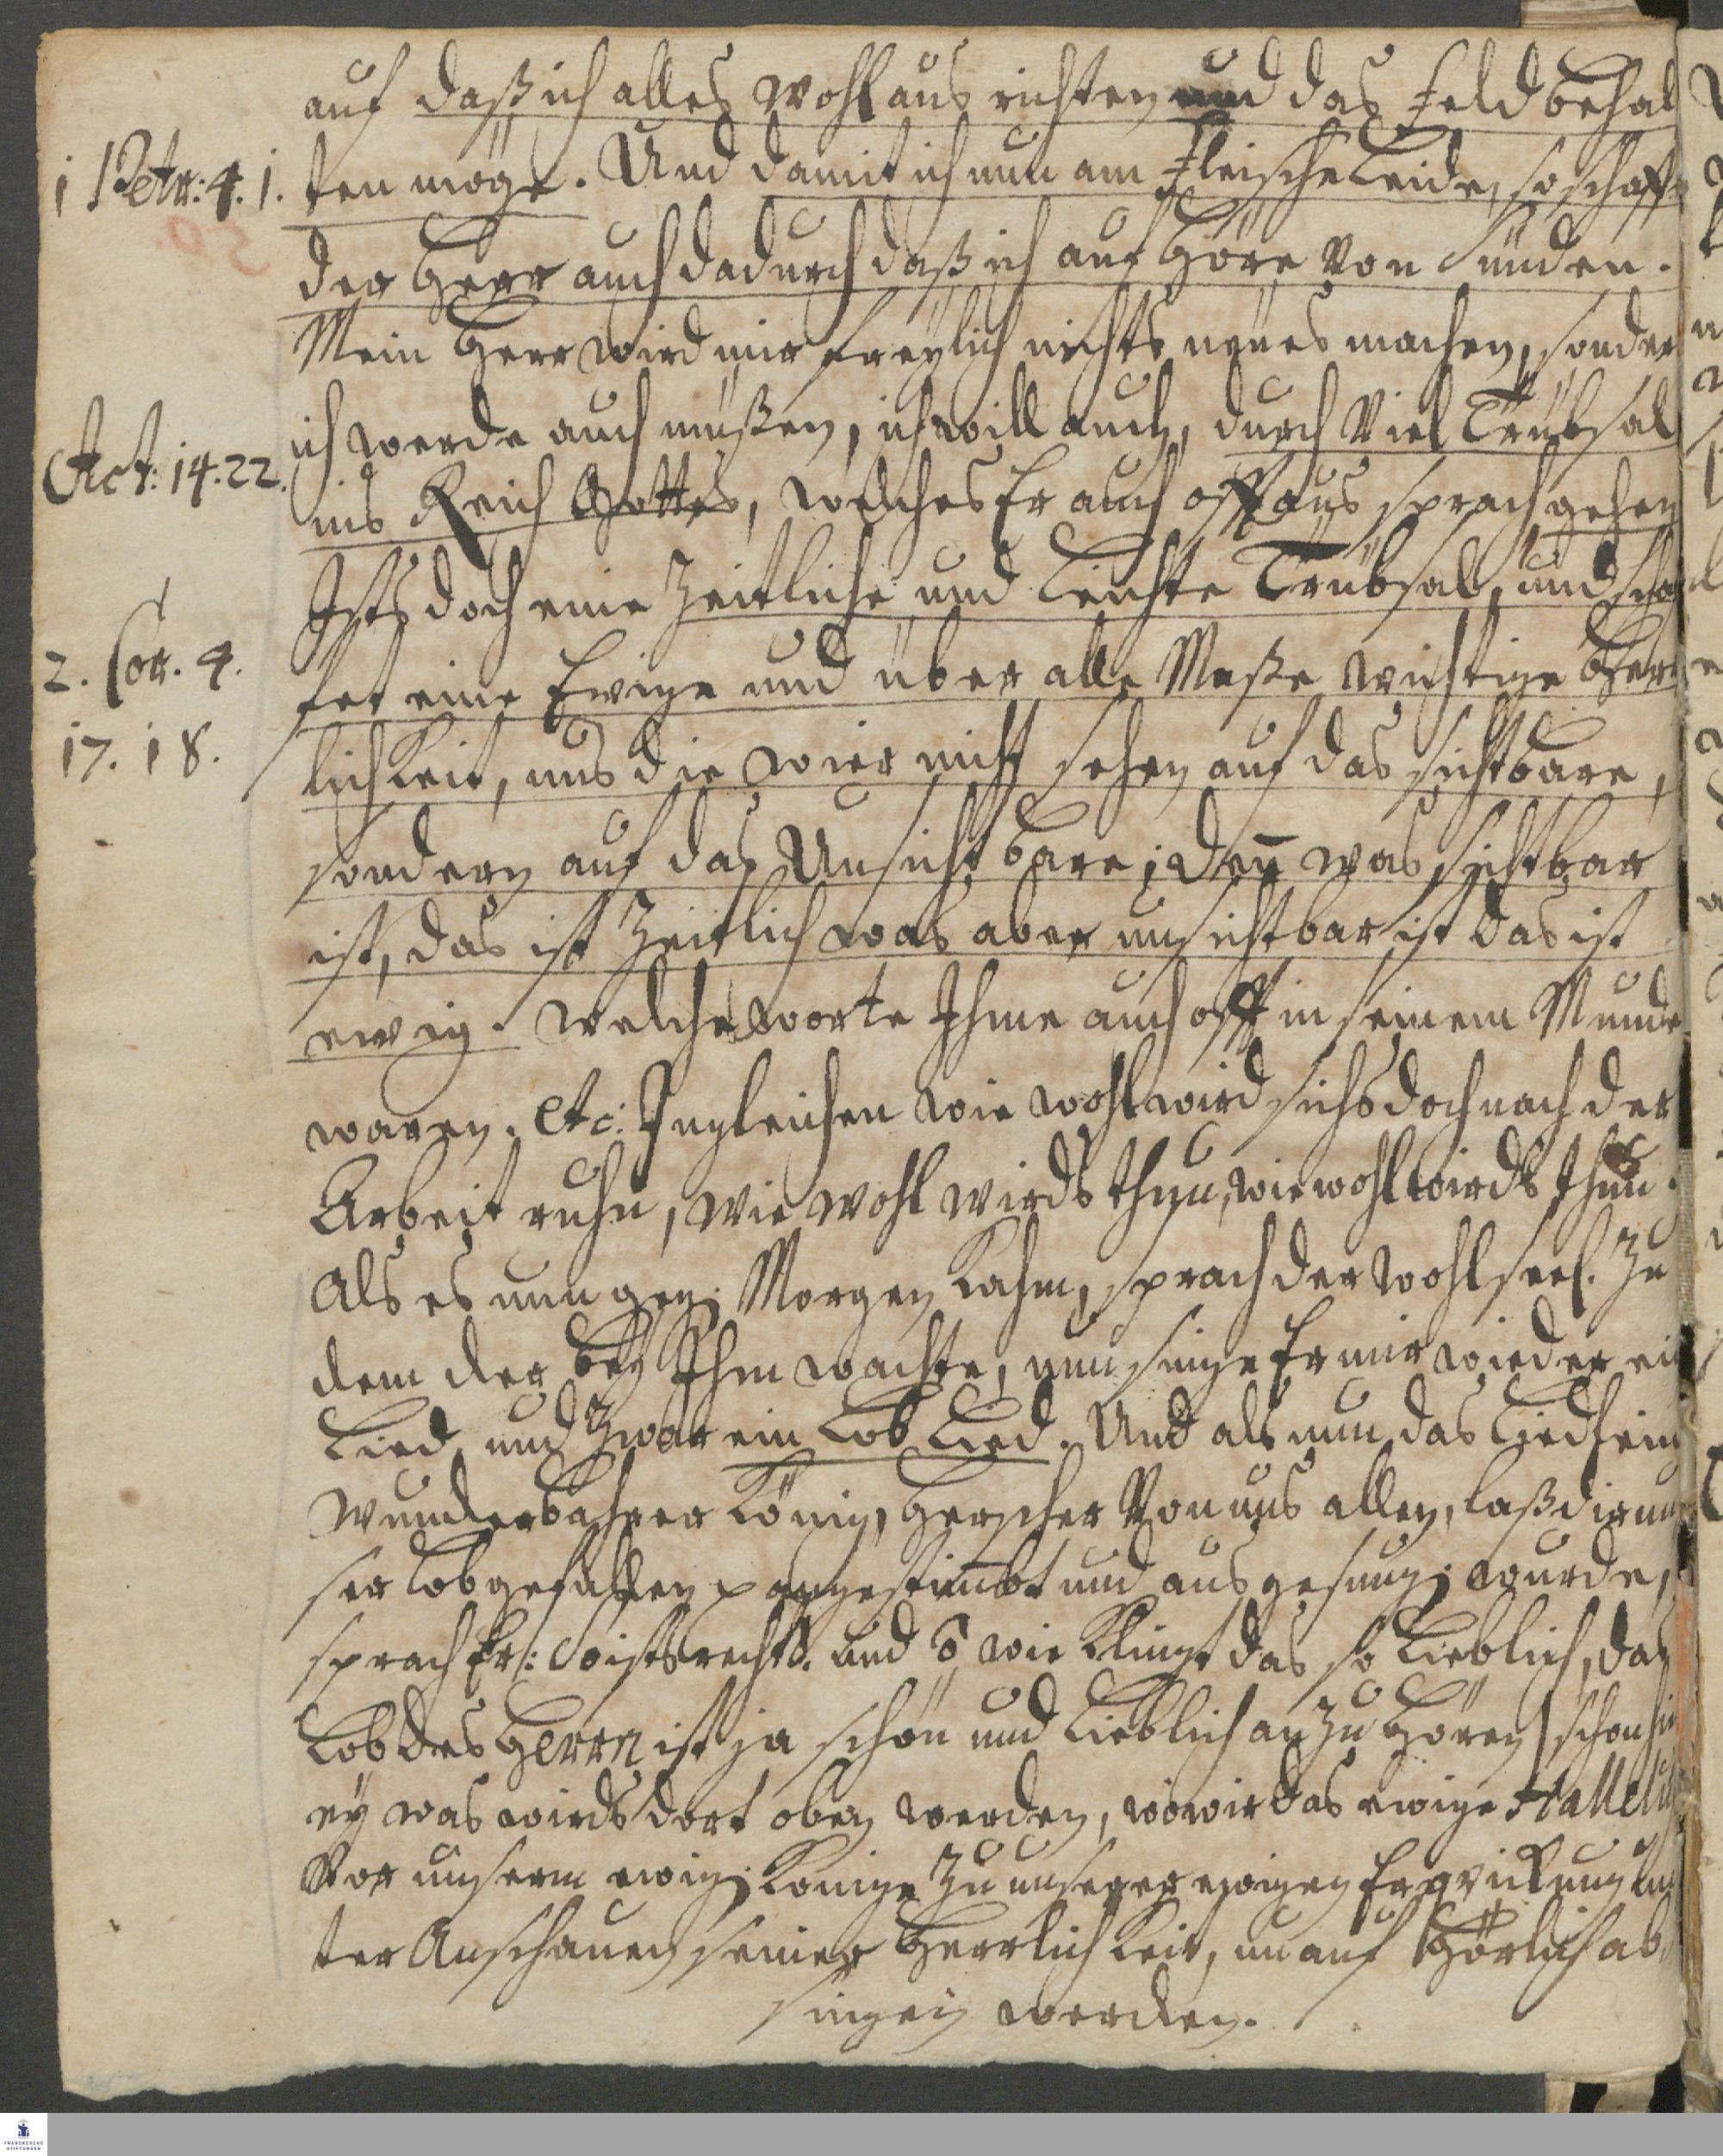 auf daß ich alles wohl aus richten und das Feld behal
1 Petr: 4. 1. ten möge. Und damit ich nun am Fleische Leide, so schaffe
der Herr auch dadurch daß ich auf Höre von Sünden.
Mein Herr wird mir freylich nichts neues machen, sondern
ich werde auch müßen, ich will auch, durch Viel Trübsal
Act: 14. 22. ins Reich Gottes, welches Er auch offt aus sprach gehen
Ists doch eine Zeitliche und Leichte Trübsal, und schaf
2. Cor. 4. fet eine Ewige und über alle Maße wichtige Herr
17. 18. lichkeit, uns die wier nicht sehen auf das sichtbare,
sondern auf das Unsichtbare; deñ was sichtbar
ist, das ist Zeitlich was aber unsichtbar ist das ist
ewig. welche worte Ihme auch offt in seinem Munde
waren. etc: Ingleichen wie wohl wird sichs doch nach der
Arbeit ruhn, wie wohl wirds thun, wie wohl wirds thun.
Als es nun geg: Morgen Kahm, sprach der wohlseel. Zu
dem der bey Ihm wachte, nun singe Er mir wieder ein
Lied, und Zwar ein Lob Lied. Und als nun das Lied sein
wunderbahrer König, Herscher Von uns allen, laß dir un
ser Lob gefallen angestim̄bt und aus gesung: wurde,
sprach Er: So ists recht. und ô wie Klingt das so Lieblich, das
Lob des Herrn ist ja schön und Lieblich an zu Hören schon hi
ey was wirds dort oben werden, wo wir das ewige Hallelu
Vor unserm ewig: Könige Zu unserer ewigen Erqvickung un
ter Anschauen seiner Herrlichkeit, un auf Hörlich ab
singen werden.
FRANCKESCHE
STIFTUNGEN